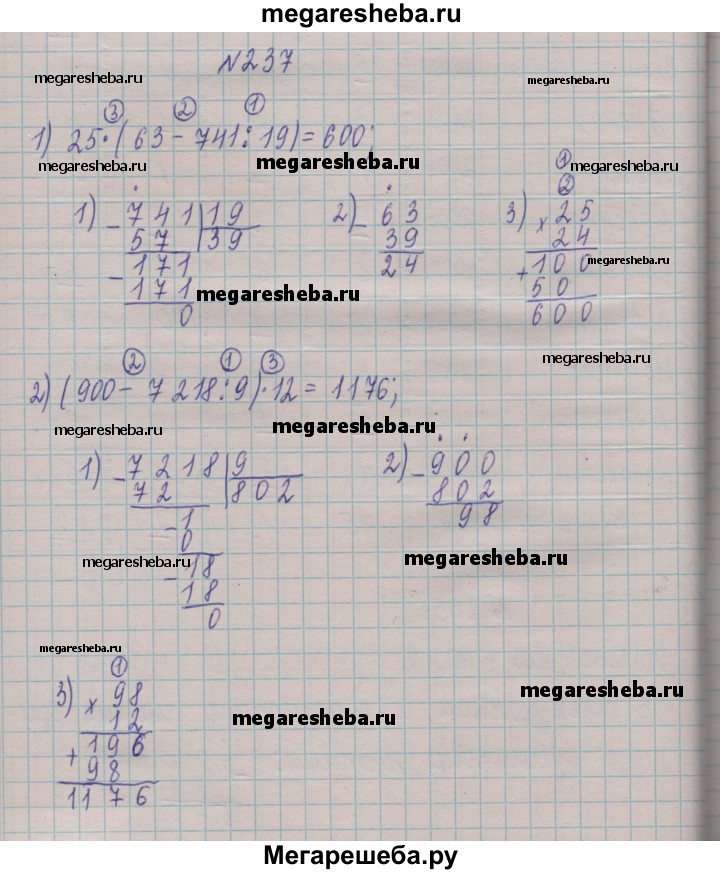 megaresheba.ru
№237
megaresheba.ru megaresheba.ru
③ ② ①
1) 25·(63-741:19)=600;
megaresheba.ru megaresheba.ru megaresheba.ru
1) - 741 | 19 2) - 63 3) × 25
① ②
57 | 39 39 24
- 171 24 + 100 megaresheba.ru
171 megaresheba.ru 50
0 600
megaresheba.ru
② ① ③
2) (900-7218:9)·12=1176;
megaresheba.ru megaresheba.ru
1) - 7218 | 9 2) - 900
72 | 802 802
- 1 98
0
megaresheba.ru megaresheba.ru
- 18
18
0
megaresheba.ru
①
3) × 98 megaresheba.ru
12 megaresheba.ru
+ 196
98
1176
Мегарешеба.ру